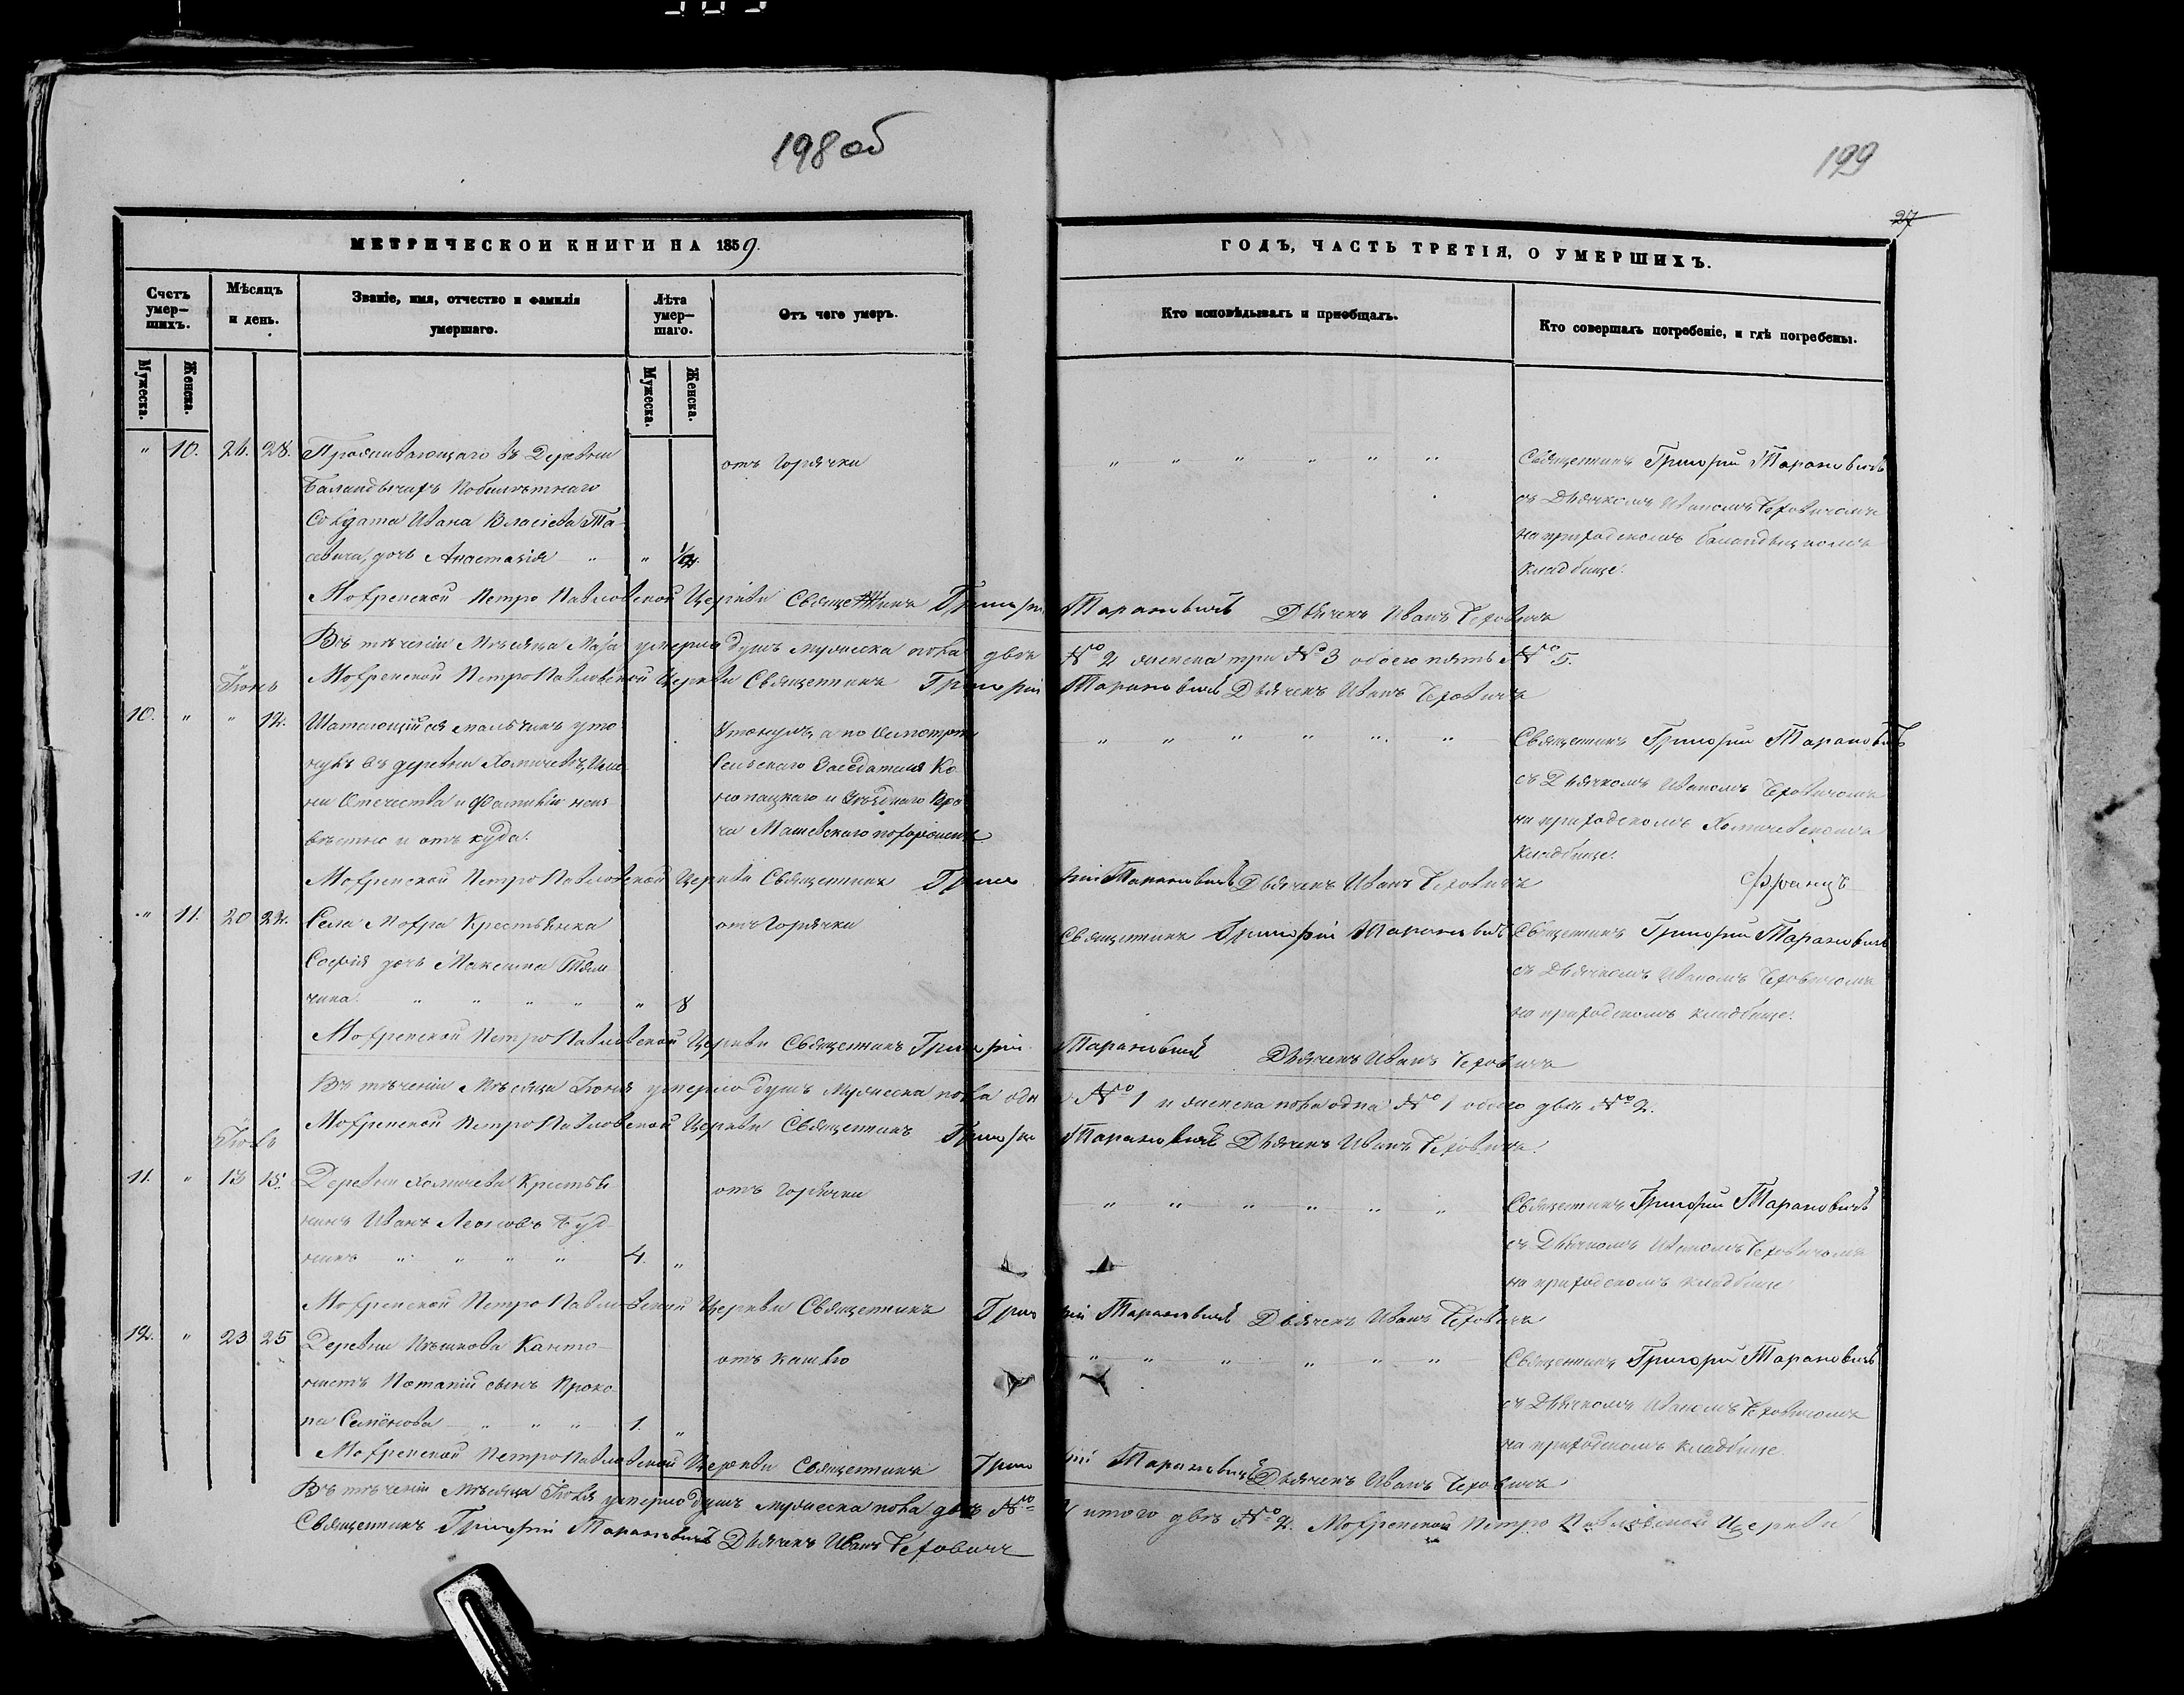 198 об
199
27
МЕТРИЧЕСКОЙ КНИГИ НА 1859.
ГОДЪ, ЧАСТЬ ТРЕТІЯ, О УМЕРШИХЪ.
Счетъ умер-шихъ.
Мѣсяцъ и день.
Званіе, имя, отчество и фамилія умершаго.
Лѣта умер-шаго.
Отъ чего умеръ.
Кто исповѣдывалъ и пріобщалъ.
Кто совершалъ погребеніе, и гдѣ погребены.
Мужеска.
Женска.
Мужеска.
Женска.
" 10. 26. 28. Проживающаго въ Деревни отъ горячки " " " " " " Священникъ Григорій Тарановичъ
Солдата Ивана Власіева Та- съ Дьячкомъ Иваномъ
дочь Анастасія " " на приходскомъ
кладбище.
Мохренской Петро Павловской Церкви Священникъ Григорій Тарановичъ Дьячекъ Иванъ
Въ теченіи Мѣсяца Мая умерло душъ мужеска пола двѣ № 2 женска три № 3 обоего пять № 5.
Мохренской Петро Павловской Церкви Священникъ Григорій Тарановичъ Дьячекъ Иванъ
Іюнь
10. " " 12. Шатающійся мальчикъ уто- Утонулъ, а по осмотрѣ " " " " " " Священникъ Григорій Тарановичъ
нулъ въ деревни Хомичевѣ, Име- Сельскаго Засѣдателя Ко- съ Дьячкомъ Иваномъ
ни Отечества и Фамиліи неиз- нопацкаго и Уѣзднаго Вра- на приходскомъ Хомичевскомъ
вѣстно и отъ куда. ча Машевскаго похороненъ кладбище.
Мохренской Петро Павловской Церкви Священникъ Григорій Тарановичъ Дьячекъ Иванъ
" 11. 20 22. Села Мохра Крестьянка отъ горячки Священникъ Григорій Тарановичъ Священникъ Григорій Тарановичъ
Софія дочь Максима съ Дьячкомъ Иваномъ
" " " " " 8 на приходскомъ кладбище.
Мохренской Петро Павловской Церкви Священникъ Григорій Тарановичъ Дьячекъ Иванъ
Въ теченіи Мѣсяца Іюня умерло душъ мужеска пола одна № 1 и женска пола одна № 1 обоего двѣ № 2.
Мохренской Петро Павловской Церкви Священникъ Григорій Тарановичъ Дьячекъ Иванъ
Іюль
11. " 13 15. Деревни Хомичева Крестья- отъ горячки " " " " " " Священникъ Григорій Тарановичъ
нинъ Иванъ Леоновъ Буд- съ Дьячкомъ Иваномъ
никъ " " " " 4. " на приходскомъ кладбище
Мохренской Петро Павловской Церкви Священникъ Григорій Тарановичъ Дьячекъ Иванъ
12. " 23 25 Деревни Канто- отъ кашлю " " " " " " Священникъ Григорій Тарановичъ
нистъ сынъ Проко- съ Дьячкомъ Иваномъ
па Семёнова " " " 1. " на приходскомъ кладбище
Мохренской Петро Павловской Церкви Священникъ Григорій Тарановичъ Дьячекъ Иванъ
Въ теченіи Мѣсяца Іюля умерло душъ мужеска пола двѣ № 2 итого двѣ № 2. Мохренской Петро Павловской Церкви
Священникъ Григорій Тарановичъ Дьячекъ Иванъ